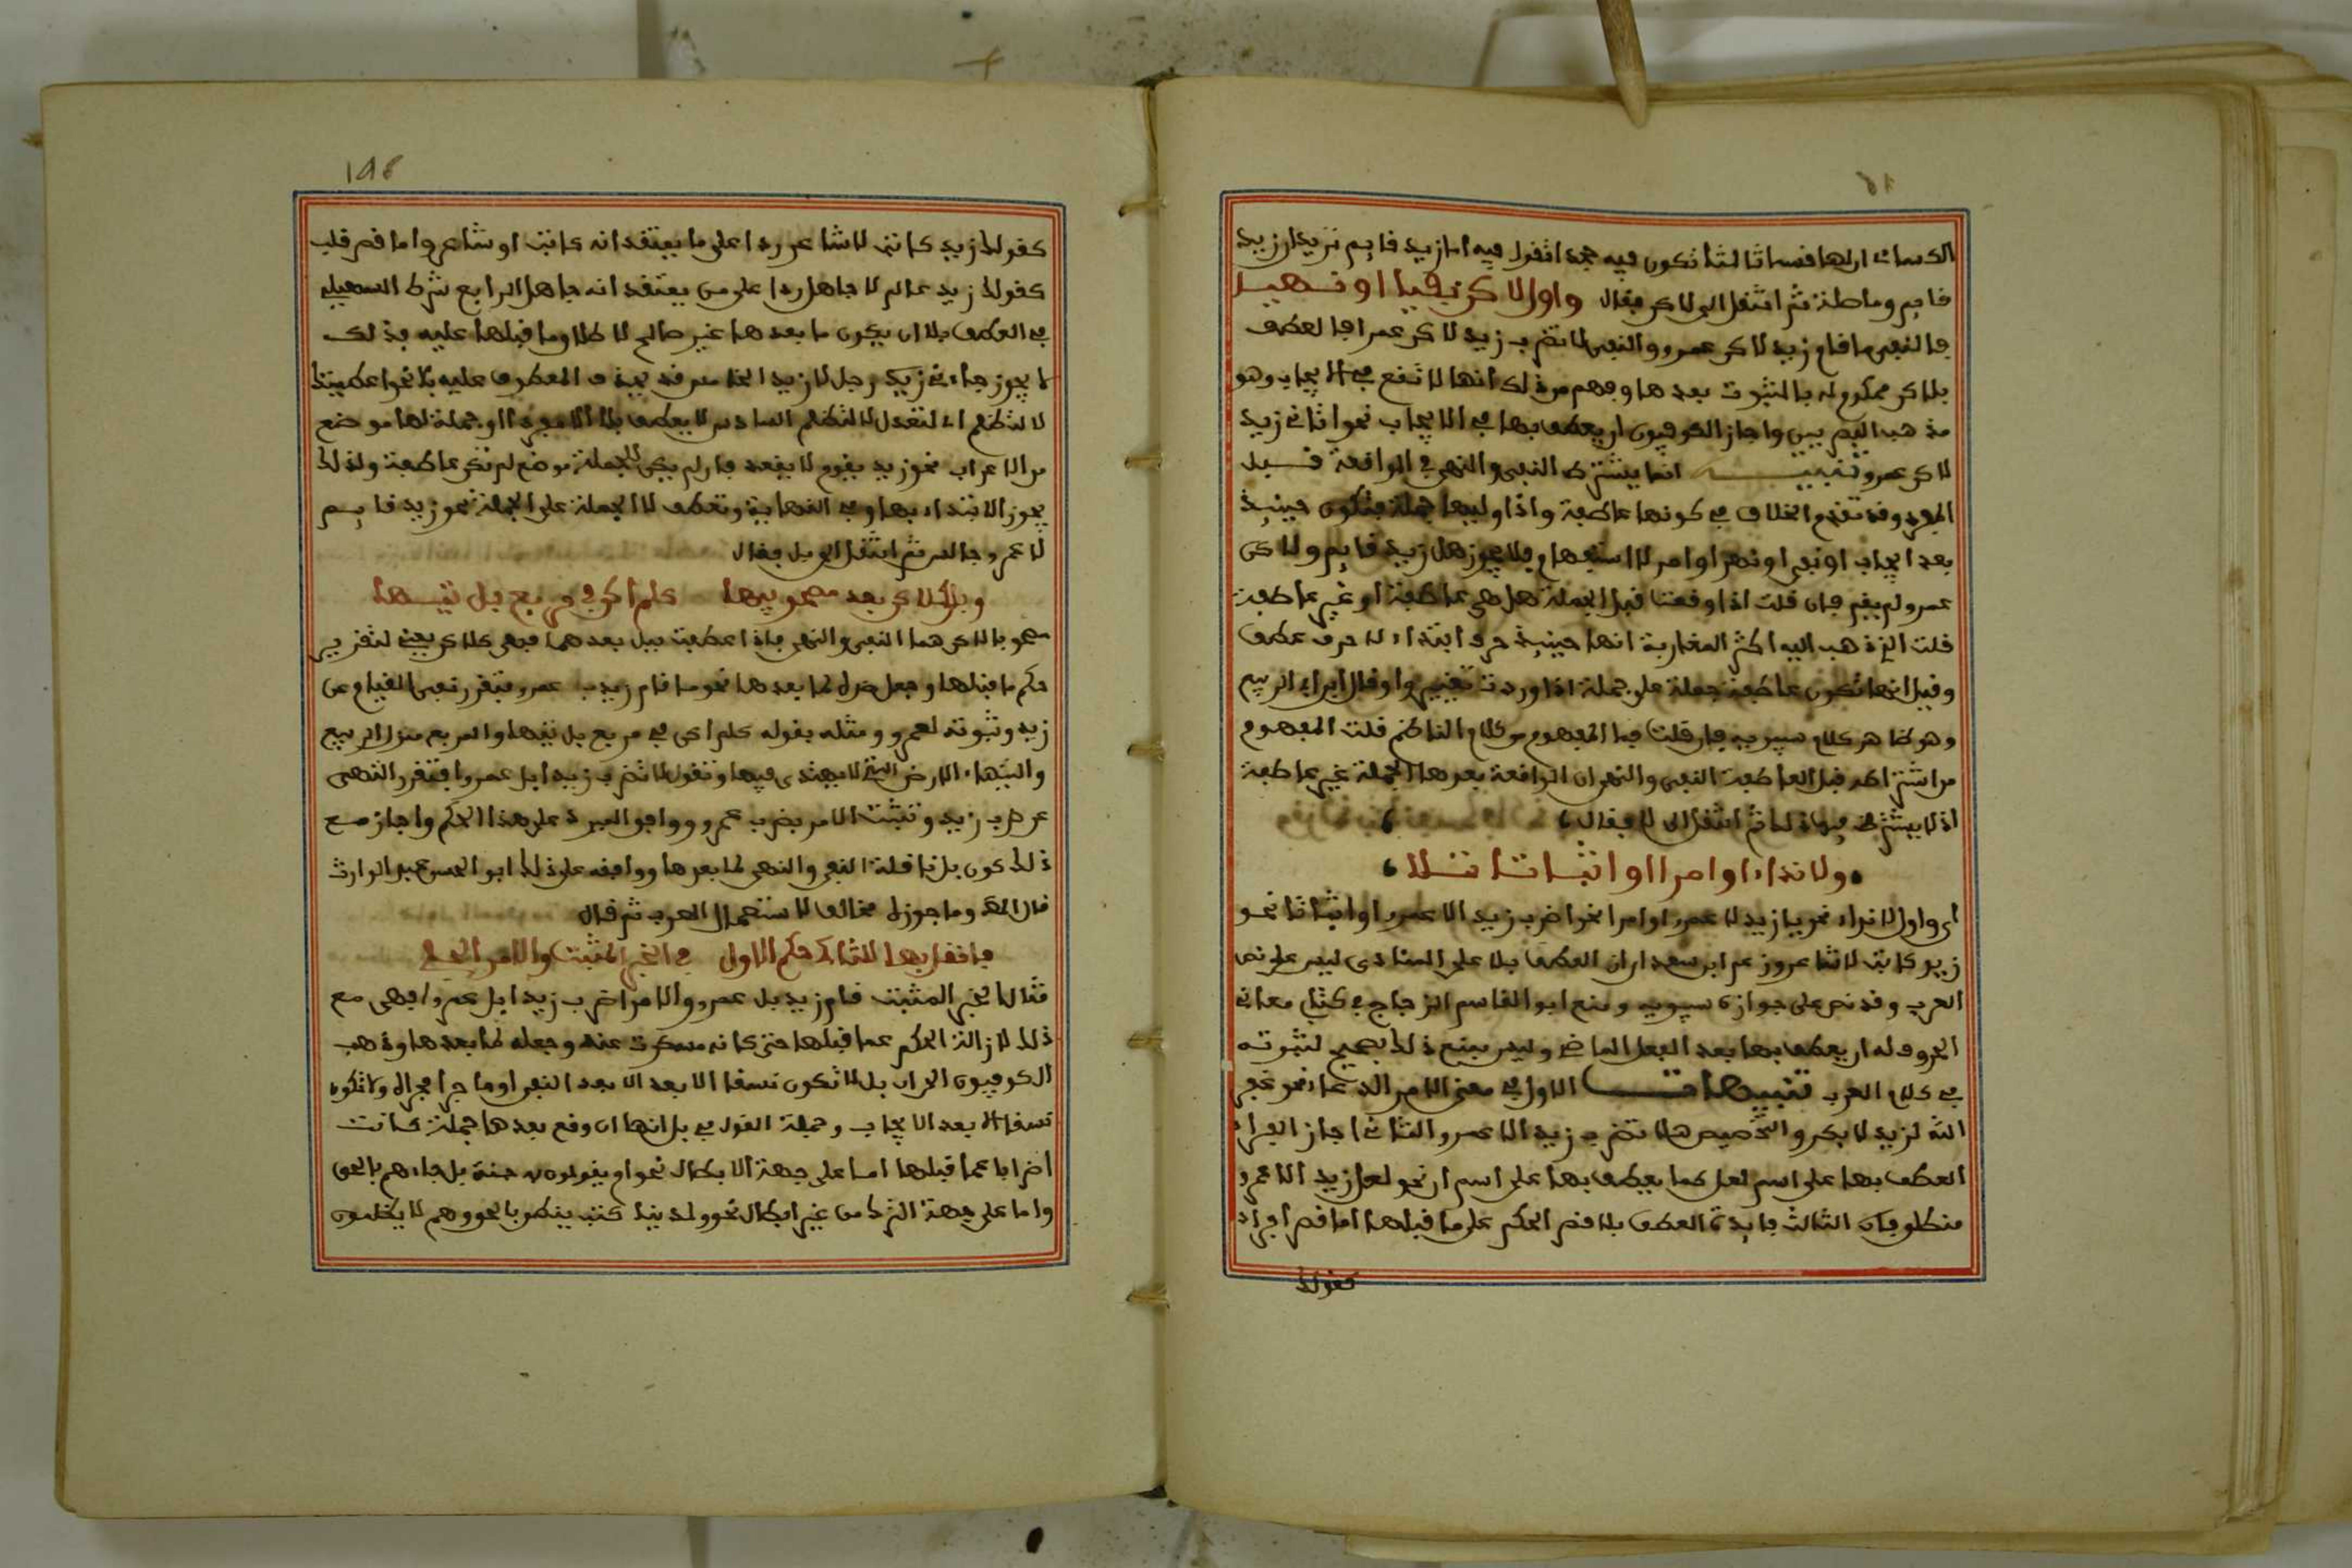 فايم وماطلة ثم انتقل الى لاكن فقال واول لاكن نفيا او نهيـــا
فالنفي ما قام زيد لاكن عمرو والنهي لا تضرب زيد لاكن عمرا فالعطف
بلاكن محكوم له بالثبوت بعدها وفهم من ذلك انها لا تقع في الايجاب وهو
مذهب البصريين واجاز الكوفيون ان يعطف بها في الايجاب نحو اتاني زيد
لاكن عمرو تنبيـــه انما يشترط النفي والنهي في الواقعة قبـــل
المفرد وقد تقدم الخلاف في كونها عاطفة واذا وليها جملة فتكون حينيذ
بعد ايجاب او نفي او نهي او امر لا استفهام فلا يجوز هل زيد قايم ولاكن
عمرو لم يقم فان قلت اذا وقعت قبل الجملة هل هي عاطفة او غير عاطفة
قلت الذي ذهب اليه اكثر المغاربة انها حينيذ حرف ابتداء لا حرف عطف
وقيل انها تكون عاطفة جملة على جملة اذا وردت بغير واو قال ابن ابي الربيع
وهو ظاهر كلام سيبويه فان قلت فما المفهوم من كلام الناظم قلت المفهوم
من اشتراطه قبل العاطفة النفي والنهي ان الواقعة بعدها الجملة غير عاطفة
اذ لا يشترط فيها ذلك ثم انتقل الى لا فقال
ولا نداء او امرا او اثباتا تـــلا
اى واول لا نداء نحو يا زيد لا عمرو او امرا نحو اضرب زيد الا عمرو او اثباتا نحو
زيد كاتب لا شاعر وزعم ابن سعدان ان العطف بلا على المنادى ليس على نص
العرب وقد نص على جوازه سيبويه ومنع ابو القاسم الزجاج في كتاب معاني
الحروف له ان يعطف بها بعد الفعل الماضي وليس منع ذلك بصحيح لثبوته
في كلام العرب تنبيهـــات الاول في معنى الامر الدعاء نحو غفر
الله لزيد لا بكر والتحضيض هلا تضرب زيد الا عمرو الثاني اجاز الفراء
العطف بها على اسم لعل كما يعطف بها على اسم ان نحو لعل زيد الا عمرو
منطلقان الثالث فايدة العطف بلا قصر الحكم على ما قبلها اما قصر افراد
كقولك
١٩٤
كقولك زيد كاتب لا شاعر ردا على ما يعتقد انه كاتب او شاعر واما قصر قلب
كقولك زيد عالم لا جاهل ردا على من يعتقد انه جاهل الرابع شرط السهيلي
في العطف بلا ان يكون ما بعدها غير صالح لاطلاق ما قبلها عليه فذلك
لا يجوز جاءني زيد رجل لا زيد الخامس قد يحذف المعطوف عليه بلا نحو اعطيتك
لا لتظلم اى لتعدل لا لتظلم السادس لا يعطف بلا الا مفردا او جملة لها موضع
من الاعراب نحو زيد يقوم لا يقعد فان لم يكن للجملة موضع لم تكن عاطفة ولذلك
يجوز الابتداء بها وفي النهاية وتعطف لا الجملة على الجملة نحو زيد قايـــم
لا عمرو جالس ثم انتقل الى بل فقال
وبل كلاكن بعد مصحوبيها كلم اكن في مربع بل تيـــها
مصحوبا لاكن هما النفي والنهي فاذا عطفت ببل بعدهما فهي كلاكن يعني لتقرير
حكم ما قبلها وجعل ضده لما بعدها نحو ما قام زيد بل عمرو فتقرر نفي القيام عن
زيد وثبوته لعمرو ومثله بقوله كلم اكن في مربع بل تيها والمربع منزل الربيع
والتيهاء الارض التي لا يهتدى فيها وتقول لا تضرب زيدا بل عمروا فتقرر النهي
عن ضرب زيد وتثبت الامر بضرب عمرو ووافق المبرد على هذا الحكم واجاز مـــع
ذلك كون بل ناقلة النفي والنهي لما بعدها ووافقه على ذلك ابو الحسن عبد الوارث
قال المص وما جوزاه مخالف لاستعمال العرب ثم قال
وانقل بها للثان حكم الاول في الخبر المثبت والامر الجلي
مثال الخبر المثبت قام زيد بل عمرو والامر اضرب زيدا بل عمروا فهي مع
ذلك لازالة الحكم عما قبلها حتى كانه مسكوت عنه وجعله لما بعدها وذهب
الكوفيون الى ان بل لا تكون نسقا الا بعد الا بعد النفي او ما جرا مجراه ولا تكون
نسقا الا بعد الايجاب وجملة القول في بل انها ان وقع بعدها جملة كانت
اضرابا عما قبلها اما على جهة الابطال نحو ام يقولون به جنة بل جاءهم بالحق
واما على جهة الترك من غير ابطال نحو ولدينا كتب ينطق بالحق وهم لا يظلمون